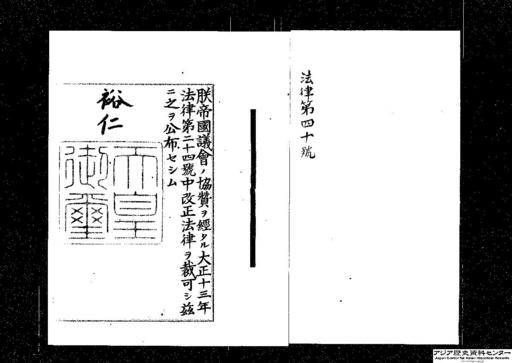 法律第四十號
朕帝國議會ノ協贊ヲ經タル大正十三年
法律第二十四號中改正法律ヲ裁可シ茲
ニ之ヲ公布セシム
裕仁
天皇
御璽
アジア歴史資料センター
Japan Center for Asian Historical Records